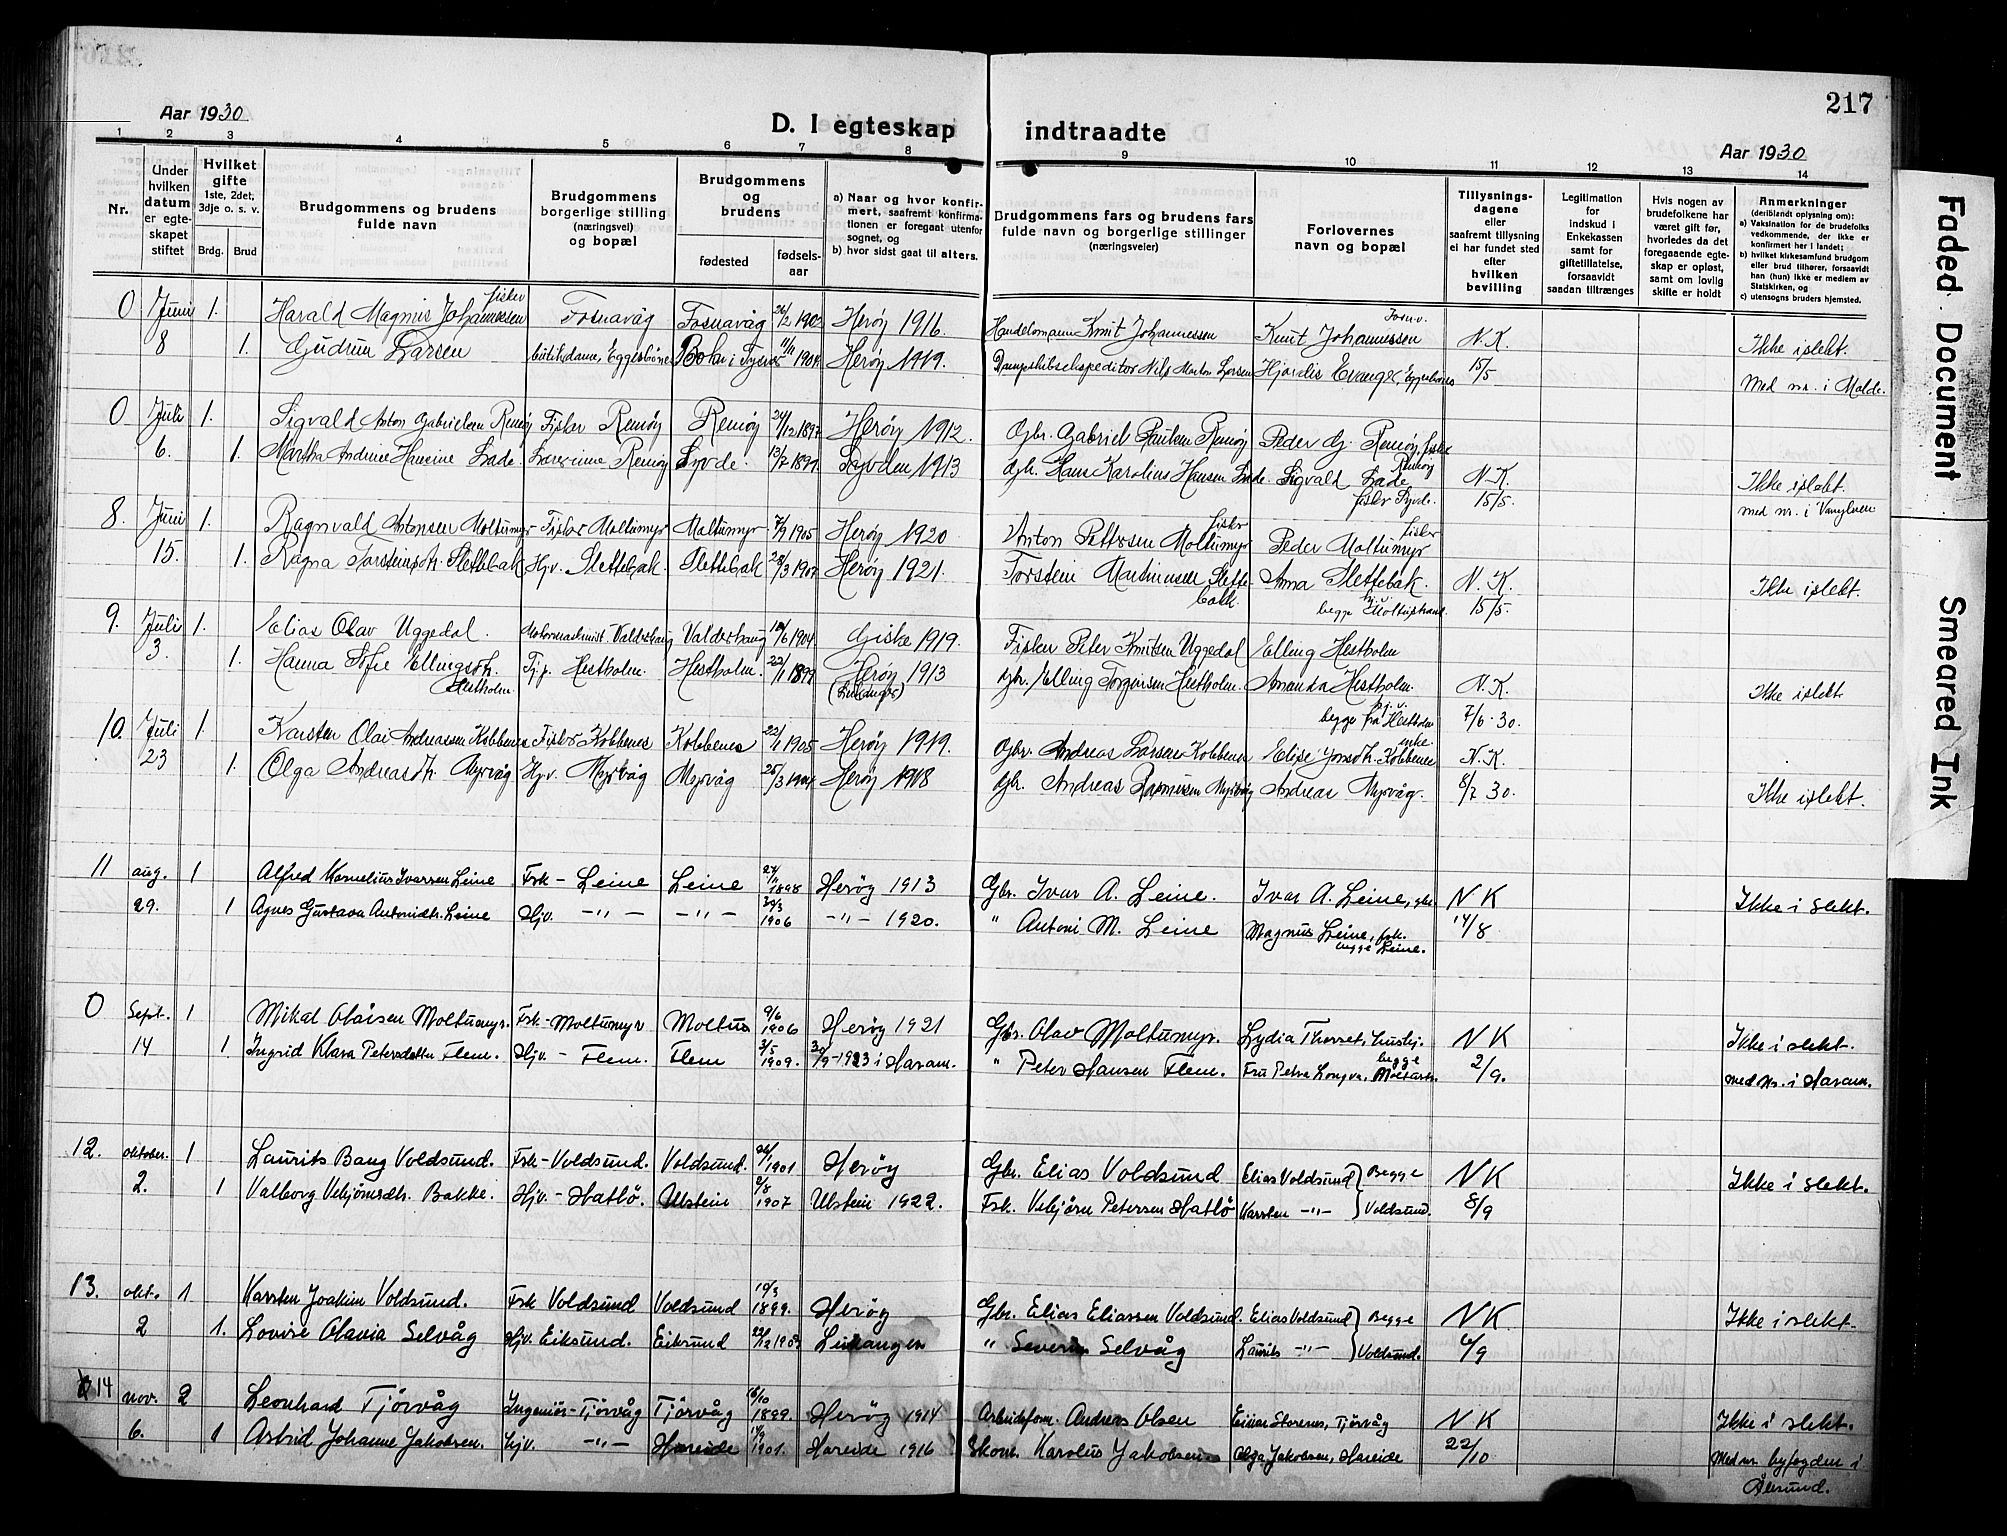 217
Aar 1930
D. I egteskap indtraadte
Aar 1930
1 2 3 4 5 6 7 8 9 10 11 12 13 14
Nr.
Under hvilken datum er egteskapet stiftet
Hvilket gifte 1ste, 2det, 3dje o. s. v.
Brdg. Brud
Brudgommens og brudens fulde navn
Brudgommens borgerlige stilling (næringsvei) og bopæl
Brudgommens og brudens
fødested
fødselsaar
a) Naar og hvor konfirmert, saafremt konfirmationen er foregaat utenfor sognet, og
b) hvor sidst gaat til alters.
Brudgommens fars og brudens fars fulde navn og borgerlige stillinger (næringsveier)
Forlovernes navn og bopæl
Tillysningsdagene eller saafremt tillysning ei har fundet sted efter hvilken bevilling
Legitimation for indskud i Enkekassen samt for giftetillatelse, forsaavidt saadan tiltrænges
Hvis nogen av brudefolkene har været gift før, hvorledes da det foregaaende egteskap er opløst, samt om lovlig skifte er holdt
Anmerkninger (deriblandt oplysning om):
a) Vaksination for de brudefolks vedkommende, der ikke er konfirmert her i landet;
b) hvilket kirkesamfund brudgom eller brud tilhører, forsaavidt han (hun) ikke er medlem av Statskirken, og
c) utensogns bruders hjemsted.
0 Juni 1. Harald Magnus Johannessen fisker Fosnavåg Fosnavåg Herøy 1916. Handelsmann Knut Johannessen Knut Johannessen Fosnv. N.K. Ikke i slekt.
8 1. Gudrun Larsen Eggesbönes 11/11 1904 Herøy 1919. Dampskibsekspeditör Nils Larsen Hjördis Evanger, Eggesbönes 15/5 Med nr. i Molde.
0 Juli 1. Sigvald Anton Gabrielsen Remöy Fisker Remöy Remöy 24/12 1897 Herøy 1912. Gbr. Gabriel Paulsen Remöy Peder G. Remöy, fisker Remöy
6. 1. Martha Andrine Hansine Lade. Lærerinne Remöy Syvde. 13/7 1899 Syvden 1913 Gbr. Hans Karolius Hansen Lade. Sigvald Lade fisker Syvde. N.K. 15/5. Ikke i slekt. med nr. i Vanylven
8. Juni 1. Ragnvald Antonsen Moltumyr Fisker Moltumyr Moltumyr 1905 Herøy 1920 Anton Pettersen Moltumyr fisker Peder Moltumyr fisker
15. 1. Ragna Torsteinsdtr. Slettebak Hjv. Slettebak Slettebak Herøy 1921. Torstein Martinusen Slettebakk. Anna Slettebak. hj.v. begge Moltustrand. N.K. 15/5. Ikke i slekt.
9. Juli 1. Elias Olav Uggedal. Valderhaug Valderhaug 1904 Giske 1919. Fisker Peter Knutsen Uggedal Elling Hestholm
3. 1. Hanna Sofie Ellingsdtr. Hestholm. Tj.p. Hestholm. Hestholm. 22/1 1899 Herøy 1913 Gbr. Elling Torgersen Hestholm. Amanda Hestholm. hj.v. begge fra Hestholm N.K. 7/6-30. Ikke i slekt
10. Juli 1. Karsten Olai Andreassen Kobbenes Fisker Kobbenes Kobbenes 22/1 1905 Herøy 1919. Gbr. Andreas Larsen Kobbenes Elise Jonsdtr. Kobbenes enke. N.K.
23 1. Olga Andreasdtr. Myrvåg Hj.v. Myrvåg Myrvåg Herøy 1918 Gbr. Andreas Rasmussen Myrvåg Andreas Myrvåg. 8/7 30. Ikke i slekt.
11 aug. 1 Alfred Kornelius Ivarsen Leine Fsk - Leine Leine 1898 Herøy 1913 Gbr. Ivar A. Leine. Ivar A. Leine, gbr. NK Ikke i slekt.
29. 1 Agnes Gustava Antonidtr. Leine Hjv. -"- -"- 1906 -"- 1920. " Antoni M. Leine Magnus Leine, fsk. begge Leine. 14/8
0 Sept. 1 Mikal Olaisen Moltumyr. Fsk - Moltumyr Moltu 9/6 1906 Herøy 1921 Gbr. Olav Moltumyr. Lydia Thorset, hushj. NK Ikke i slekt.
14 1. Ingrid Klara Petersdatter Flem. Hjv. - Flem. Flem 3/5 1909. 1923 i Haram. " Peter Hansen Flem. Fru Petra Longva, begge 2/9. med nr. i Haram.
12. oktober. 1 Laurits Bang Voldsund. Fsk - Voldsund. Voldsund. 1901 Herøy Gbr. Elias Voldsund Elias Voldsund } Begge NK Ikke i slekt.
2. 1 Valborg Vebjörnsdtr. Bakke. Hjv. - Hatlö. Ulstein 1907 Ulstein 1922. Fsk. Vebjörn Petersen Hatlö Karsten -"- } Voldsund. 8/9
13. okt. 1 Karsten Joakim Voldsund. Fsk Voldsund Voldsund 10/3 1899. Herøy Gbr. Elias Eliassen Voldsund. Elias Voldsund } Begge NK Ikke i slekt.
2 1. Lovise Olavia Selvåg Hjv. Eiksund. Eiksund " Severin Selvåg Laurits -"- } Voldsund.
14 nov. 2 Leonhard Tjörvåg Ingeniör - Tjörvåg Tjörvåg 1899. Herøy 1914 Arbeidsform. Andreas Olsen Einar Storenes, Tjörvåg NK Ikke i slekt.
6. 1 Astrid Johanne Jakobsen. hjv. -"- Hareide 1901. Hareide 1916 Skom. Karolus Jakobsen Olga Jakobsen, Hareide 22/10 Med nr. byfogden i Ålesund.
Faded Document
Smeared Ink